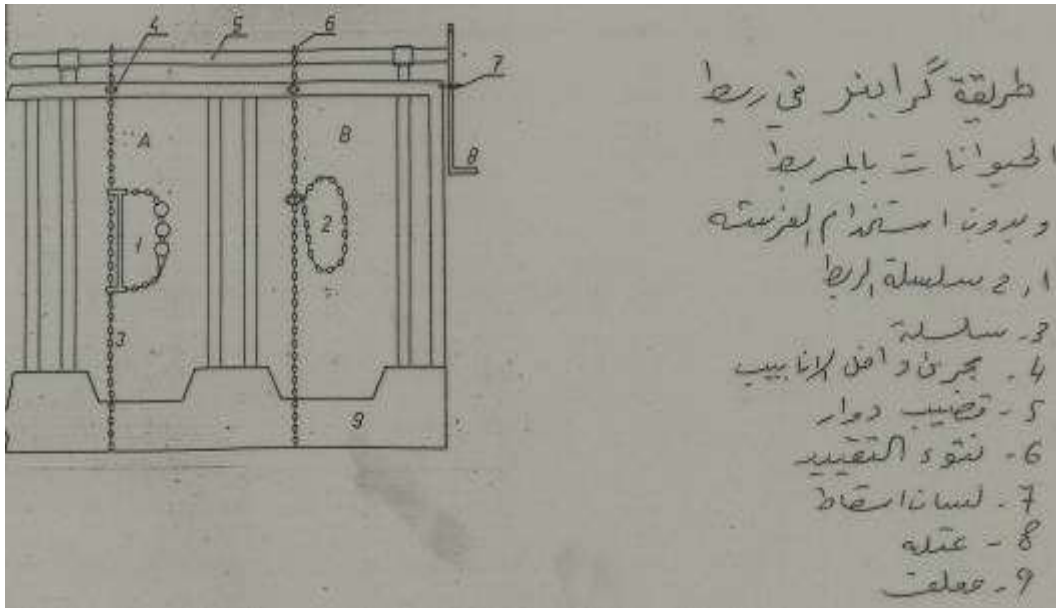 4 5 6
7
A B
8
1 2
3
9
طريقة گرابنر في ربط
الحيوانات بالمربط
وبدون استخدام الفرشه
1, 2 سلسلة الربط
3- سلسلة
4. مجرى داخل الانابيب
5- قضيب دوار
6- نتوء التقييد
7. لسان اسقاط
8 - عتله
9. معلف